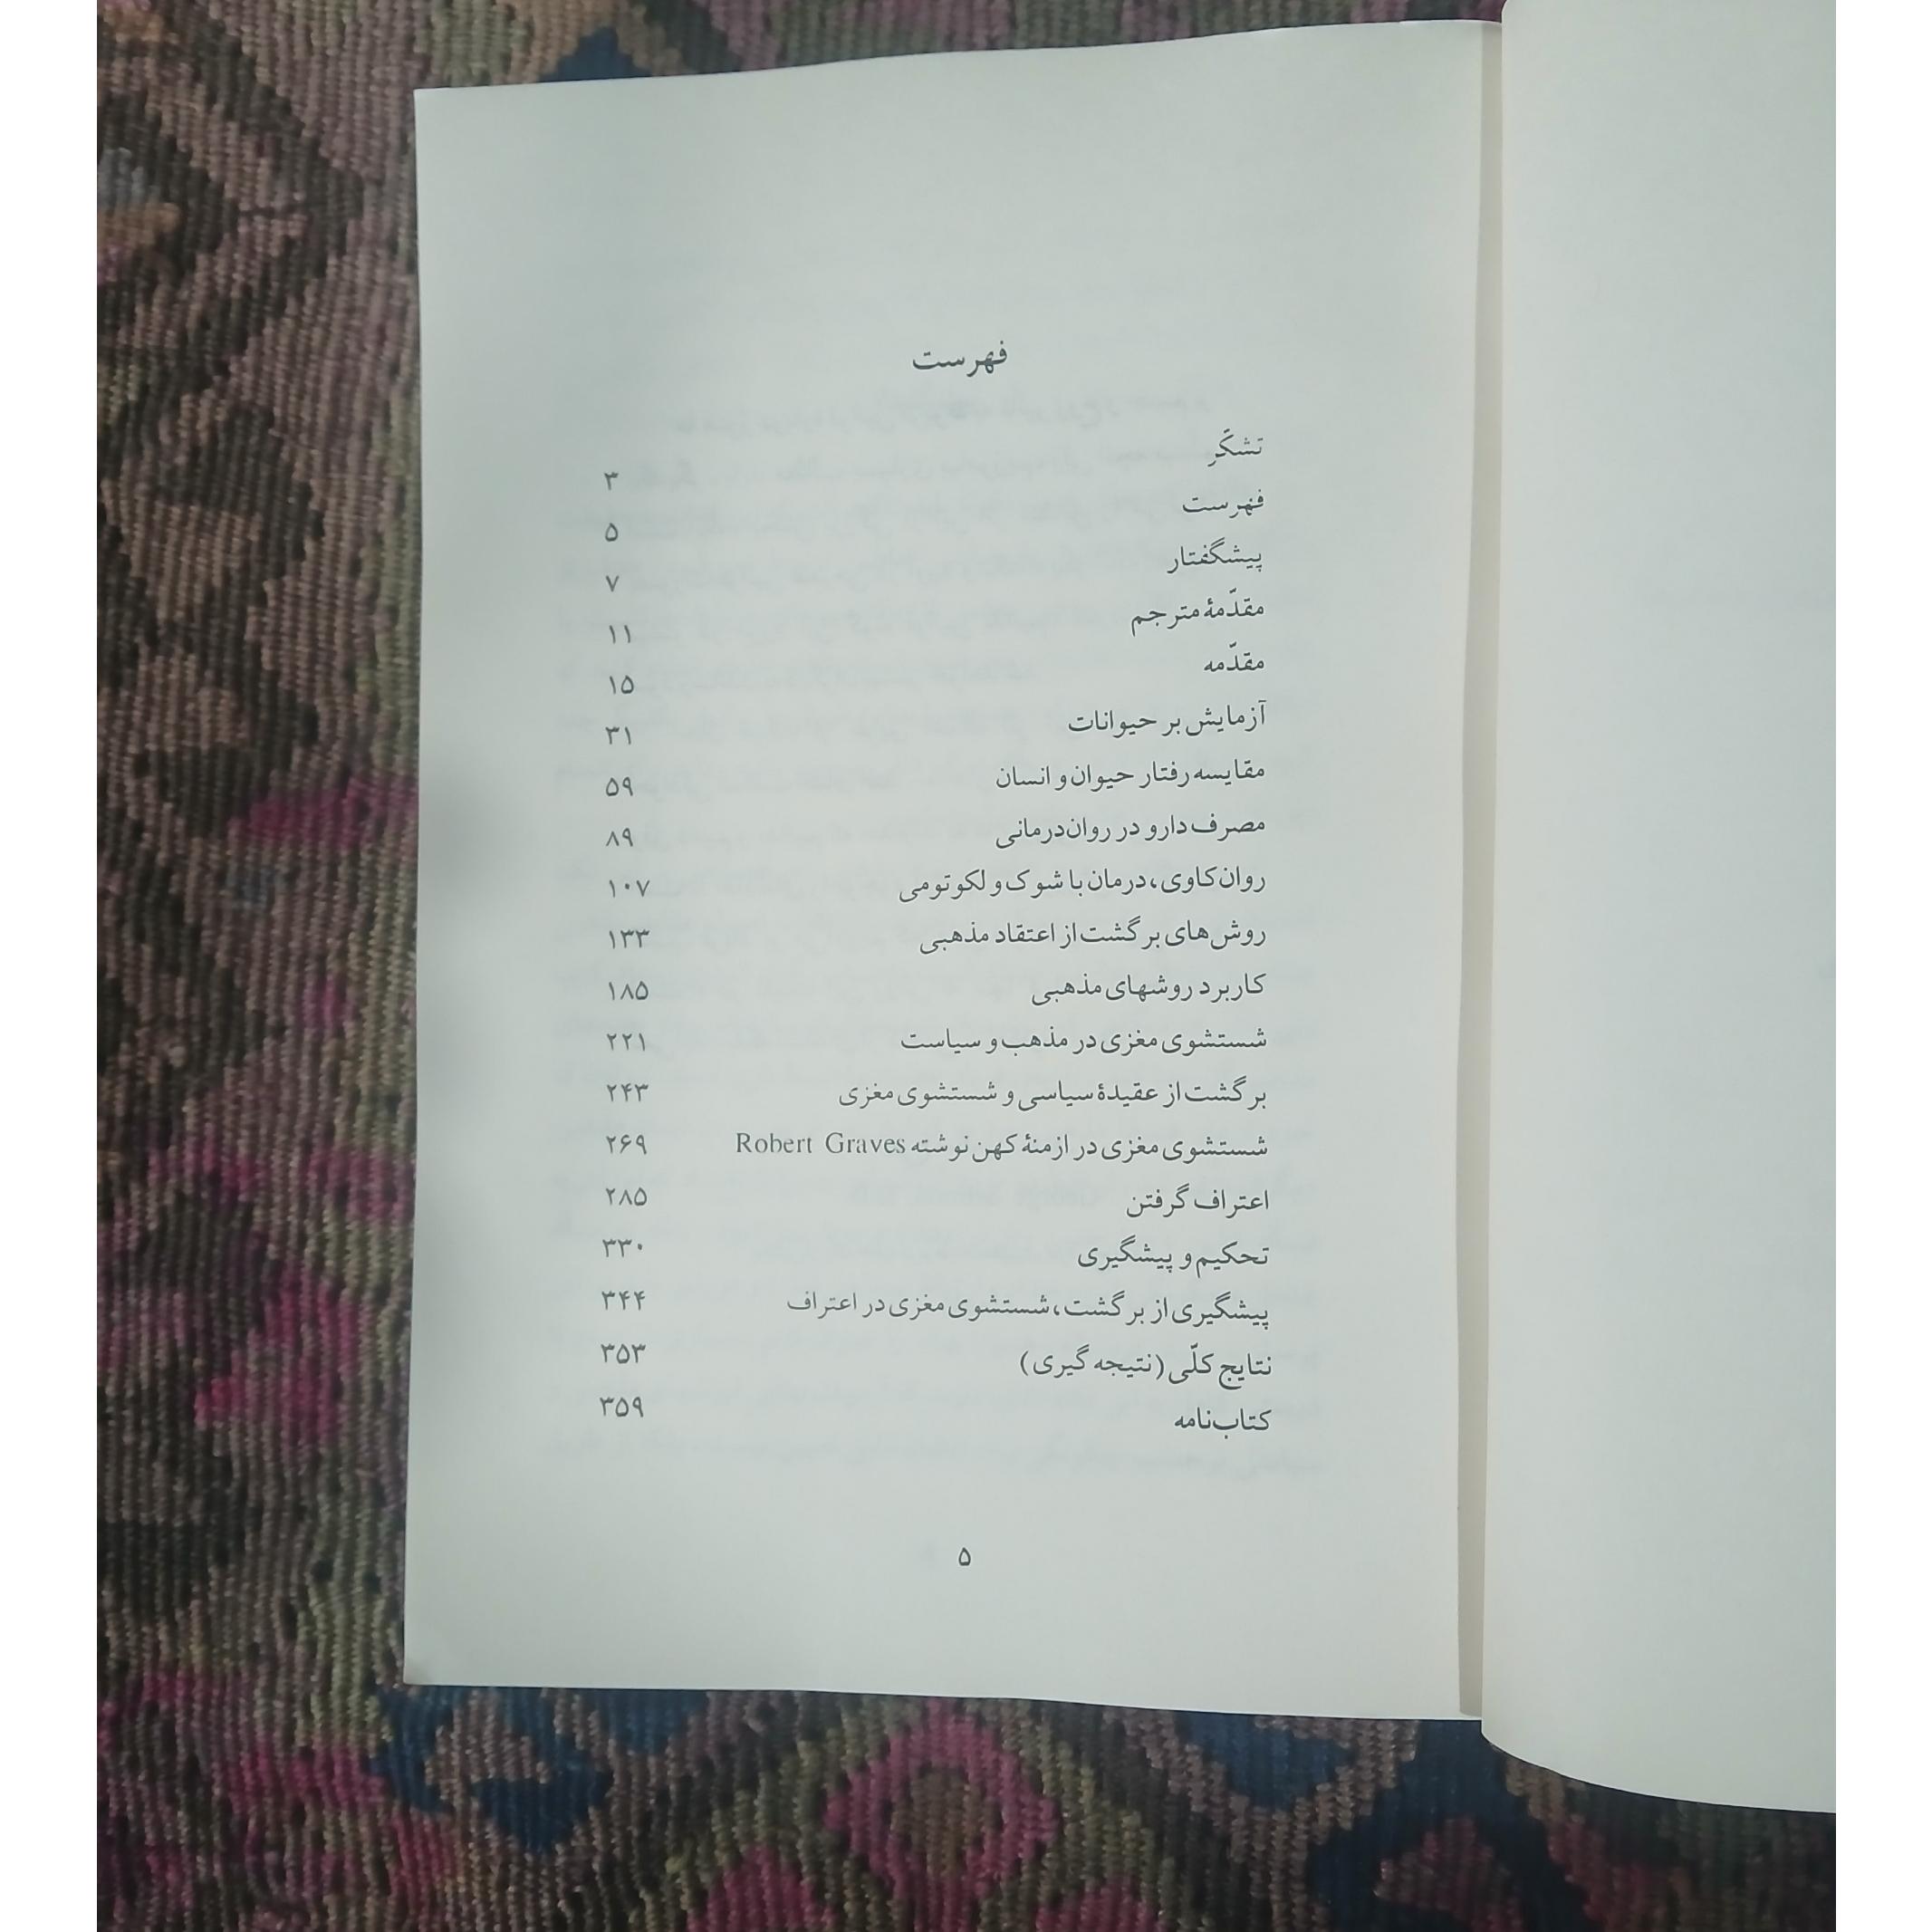 فهرست
تشکّر ۳
فهرست ۵
پیشگفتار ۷
مقدّمهٔ مترجم ۱۱
مقدّمه ۱۵
آزمایش بر حیوانات ۳۱
مقایسه رفتار حیوان و انسان ۵۹
مصرف دارو در روان‌درمانی ۸۹
روان‌کاوی، درمان با شوک و لکوتومی ۱۰۷
روش‌های برگشت از اعتقاد مذهبی ۱۳۳
کاربرد روشهای مذهبی ۱۸۵
شستشوی مغزی در مذهب و سیاست ۲۲۱
برگشت از عقیدهٔ سیاسی و شستشوی مغزی ۲۴۳
شستشوی مغزی در ازمنهٔ کهن نوشته Robert Graves ۲۶۹
اعتراف گرفتن ۲۸۵
تحکیم و پیشگیری ۳۳۰
پیشگیری از برگشت، شستشوی مغزی در اعتراف ۳۴۴
نتایج کلّی (نتیجه گیری) ۳۵۳
کتاب‌نامه ۳۵۹
۵